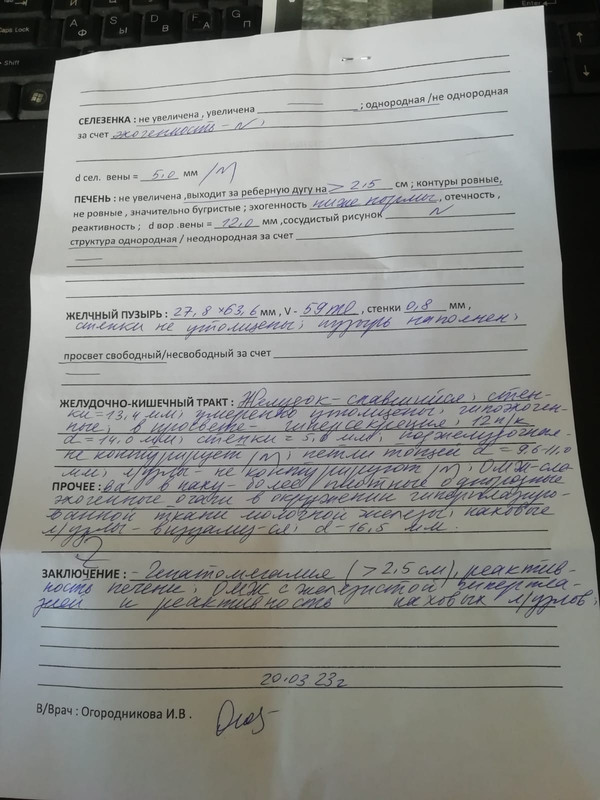 Caps Lock
Shift
Enter
А Ф
S Ы
D В
F А
G П
СЕЛЕЗЕНКА : не увеличена , увеличена ; однородная /не однородная
за счет эхогенность – N ,
d сел. вены = 5,0 мм /N
ПЕЧЕНЬ : не увеличена ,выходит за реберную дугу на > 2,5 см ; контуры ровные,
не ровные , значительно бугристые ; эхогенность ниже нормы , отечность ,
реактивность ; d вор .вены = 12,0 мм ,сосудистый рисунок N
структура однородная / неоднородная за счет
ЖЕЛЧНЫЙ ПУЗЫРЬ : 27,8 × 63,6 мм , V - 59 ml , стенки 0,8 мм ,
стенки не утолщены; пузырь наполнен;
просвет свободный/несвободный за счет
ЖЕЛУДОЧНО-КИШЕЧНЫЙ ТРАКТ : Желудок – спавшийся; стен-
ки = 13,4 мм; умеренно утолщены; гипоэхоген-
ные; в просвете – гиперсекреция; 12 п/к
d = 14,0 мм; стенки = 5,0 мм; поджелудочная-
не контурирует /N; петли тощей d = 9,6-11,0
мм; л/узлы – не контурируют /N; ОМЖ-сле-
ПРОЧЕЕ : ва в паху – более плотные однородные
эхогенные очаги в окружении
ванной ткани молочной железы; паховые
л/узлы – визуализ-ся; d – 16,5 мм.
ЗАКЛЮЧЕНИЕ : - Гепатомегалия ( > 2,5 см ), реактив-
ность печени; ОМЖ с железистой гиперпла-
зией и реактивность паховых л/узлов;
20.03 23г
В/Врач : Огородникова И.В .